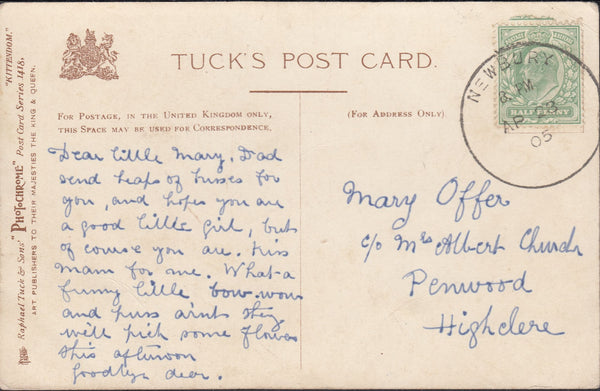 TUCK'S POST CARD.
FOR POSTAGE, IN THE UNITED KINGDOM ONLY,
THIS SPACE MAY BE USED FOR CORRESPONDENCE.
(FOR ADDRESS ONLY)
"KITTENDOM."
Raphael Tuck & Sons' "PHOTOCHROME" Post Card Series 1418,
ART PUBLISHERS TO THEIR MAJESTIES THE KING & QUEEN.
Dear little Mary. Dad
send heaps of kisses for
you, and hopes you are
a good little girl, but
of course you are. Kiss
Mam for me. What-a
funny little bow-wow
and puss aint they
we'll pick some flowers
this afternoon
Goodbye dear.
NEWBURY
PM
AP 23
05
HALFPENNY
Mary Offer
c/o Mrs Albert Church
Penwood
Highclere